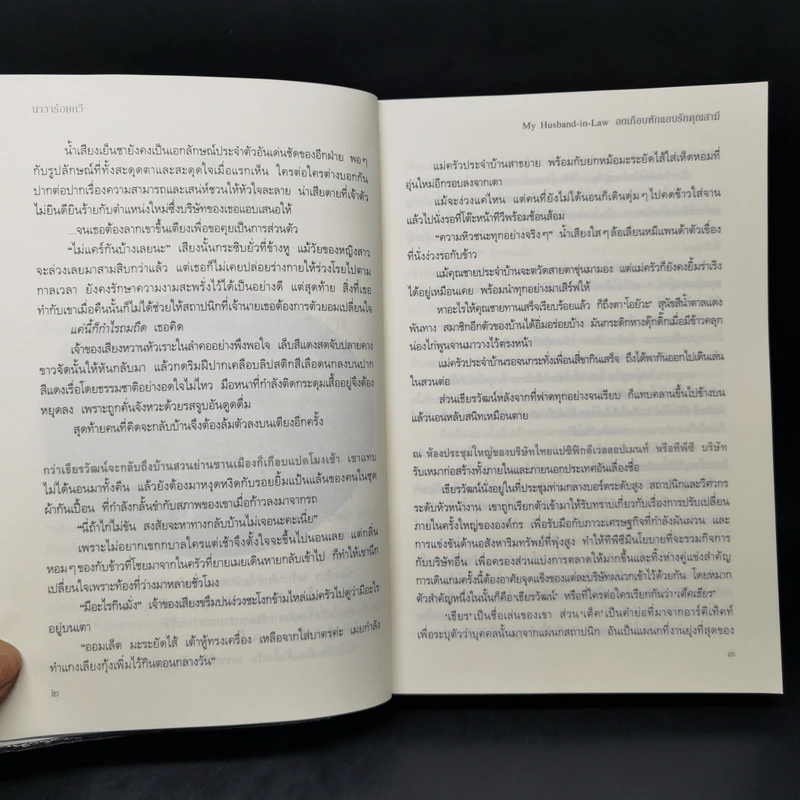 นาวาร้อยกวี
น้ำเสียงเย็นชายังคงเป็นเอกลักษณ์ประจำตัวอันเด่นชัดของอีกฝ่าย พอๆ
กับรูปลักษณ์ที่ทั้งสะดุดตาและสะดุดใจเมื่อแรกเห็น ใครต่อใครต่างบอกกัน
ปากต่อปากเรื่องความสามารถและเสน่ห์ชวนให้หัวใจละลาย น่าเสียดายที่เจ้าตัว
ไม่ยินดียินร้ายกับตำแหน่งใหม่ซึ่งบริษัทของเธอแอบเสนอให้
...จนเธอต้องลากเขาขึ้นเตียงเพื่อขอคุยเป็นการส่วนตัว
“ไม่แคร์กันบ้างเลยนะ” เสียงนั้นกระซิบยั่วที่ข้างหู แม้วัยของหญิงสาว
จะล่วงเลยมาสามสิบกว่าแล้ว แต่เธอก็ไม่เคยปล่อยร่างกายให้ร่วงโรยไปตาม
กาลเวลา ยังคงรักษาความงามสะพรั่งไว้ได้เป็นอย่างดี แต่สุดท้าย สิ่งที่เธอ
ทำกับเขาเมื่อคืนนั้นก็ไม่ได้ช่วยให้สถาปนิกที่เจ้านายเธอต้องการตัวยอมเปลี่ยนใจ
แค่นี้ก็กำไรถมถืด เธอคิด
เจ้าของเสียงหวานหัวเราะในลำคออย่างพึงพอใจ เล็บสีแดงสดจับปลายคาง
ขาวจัดนั้นให้หันกลับมา แล้วกดริมฝีปากเคลือบลิปสติกสีเลือดนกลงบนปาก
สีแดงเรื่อโดยธรรมชาติอย่างอดใจไม่ไหว มือหนาที่กำลังติดกระดุมเสื้ออยู่จึงต้อง
หยุดลง เพราะถูกคั่นจังหวะด้วยรสจูบอันดูดดื่ม
สุดท้ายคนที่คิดจะกลับบ้านจึงต้องล้มตัวลงบนเตียงอีกครั้ง
กว่าเธียรวัฒน์จะกลับถึงบ้านสวนย่านชานเมืองก็เกือบแปดโมงเช้า เขาแทบ
ไม่ได้นอนมาทั้งคืน แล้วยังต้องมาหงุดหงิดกับรอยยิ้มแป้นแล้นของคนในชุด
ผ้ากันเปื้อน ที่กำลังกลั้นขำกับสภาพของเขาเมื่อก้าวลงมาจากรถ
“นี่ถ้าไก่ไม่ขัน สงสัยจะหาทางกลับบ้านไม่เจอนะคะเนี่ย”
เพราะไม่อยากเขกกบาลใครแต่เช้าจึงตั้งใจจะขึ้นไปนอนเลย แต่กลิ่น
หอมๆ ของกับข้าวที่โชยมาจากในครัวที่ยายเมยเดินหายกลับเข้าไป ก็ทำให้เขานึก
เปลี่ยนใจเพราะท้องที่ว่างมาหลายชั่วโมง
“มีอะไรกินมั่ง” เจ้าของเสียงขรึมปนง่วงชะโงกข้ามไหล่แม่ครัวไปดูว่ามีอะไร
อยู่บนเตา
“ออมเล็ต มะระยัดไส้ เต้าหู้ทรงเครื่อง เหลือจากใส่บาตรค่ะ เมยกำลัง
ทำแกงเลียงกุ้งเพิ่มไว้กินตอนกลางวัน”
๒
My Husband-in-Law อกเกือบหักแอบรักคุณสามี
แม่ครัวประจำบ้านสาธยาย พร้อมกับยกหม้อมะระยัดไส้ใส่เห็ดหอมที่
อุ่นใหม่อีกรอบลงจากเตา
แม้จะง่วงแค่ไหน แต่คนที่ยังไม่ได้นอนก็เดินดุ่มๆ ไปคดข้าวใส่จาน
แล้วไปนั่งรอที่โต๊ะหน้าทีวีพร้อมช้อนส้อม
“ความหิวชนะทุกอย่างจริงๆ” น้ำเสียงใสๆ ล้อเลียนหมีแพนด้าตัวเขื่อง
ที่นั่งง่วงรอกับข้าว
แม้คุณชายประจำบ้านจะตวัดสายตาขุ่นมามอง แต่แม่ครัวก็ยังคงยิ้มร่าเริง
ได้อยู่เหมือนเคย พร้อมนำทุกอย่างมาเสิร์ฟให้
หาอะไรให้คุณชายทานเสร็จเรียบร้อยแล้ว ก็ถึงตา ‘โอยัวะ’ สุนัขสีน้ำตาลแดง
พันทาง สมาชิกอีกตัวของบ้านได้อิ่มอร่อยบ้าง มันกระดิกหางดุ๊กดิ๊กเมื่อมีข้าวคลุก
น่องไก่พูนจานมาวางไว้ตรงหน้า
แม่ครัวประจำบ้านรอจนกระทั่งเพื่อนสี่ขากินเสร็จ ถึงได้พากันออกไปเดินเล่น
ในสวนต่อ
ส่วนเธียรวัฒน์หลังจากที่ฟาดทุกอย่างจนเรียบ ก็แทบคลานขึ้นไปข้างบน
แล้วนอนหลับสนิทเหมือนตาย
ณ ห้องประชุมใหญ่ของบริษัทไทยแปซิฟิกดีเวลลอปเมนท์ หรือทีพีซี บริษัท
รับเหมาก่อสร้างทั้งภายในและภายนอกประเทศอันเลื่องชื่อ
เธียรวัฒน์นั่งอยู่ในที่ประชุมท่ามกลางบอร์ดระดับสูง สถาปนิกและวิศวกร
ระดับหัวหน้างาน เขาถูกเรียกตัวเข้ามาให้รับทราบเกี่ยวกับเรื่องการปรับเปลี่ยน
ภายในครั้งใหญ่ขององค์กร เพื่อรับมือกับภาวะเศรษฐกิจที่กำลังผันผวน และ
การแข่งขันด้านอสังหาริมทรัพย์ที่พุ่งสูง ทำให้ทีพีซีมีนโยบายที่จะรวมกิจการ
กับบริษัทอื่น เพื่อครองส่วนแบ่งการตลาดให้มากขึ้นและทิ้งห่างคู่แข่งสำคัญ
การเดินเกมครั้งนี้ต้องอาศัยจุดแข็งของแต่ละบริษัทผนวกเข้าไว้ด้วยกัน โดยหมาก
ตัวสำคัญหนึ่งในนั้นก็คือ ‘เธียรวัฒน์’ หรือที่ใครต่อใครเรียกกันว่า ‘เต็คเธียร’
‘เธียร’ เป็นชื่อเล่นของเขา ส่วน ‘เต็ค’ เป็นคำย่อที่มาจากอาร์คิเท็คท์
เพื่อระบุตัวว่าบุคคลนั้นมาจากแผนกสถาปนิก อันเป็นแผนกที่งานยุ่งที่สุดของ
๓